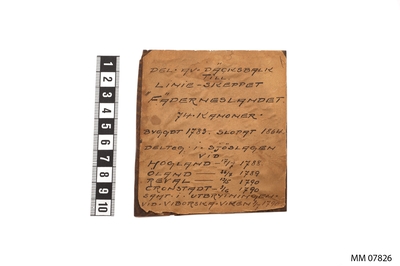 DEL · AV · DÄCKSBALK
TILL
LINIE-SKEPPET
"FÄDERNESLANDET
74-KANONER
BYGGDT 1783. SLOPAT 1864
DELTOG · I · SJÖSLAGEN
VID
HOGLAND — 17/7 1788
ÖLAND — 1789
REVAL — 1790
CRONSTADT — 1790
SAMT · I · UTBRYTNINGEN
VID · VIBORSKA · VIKEN
1 2 3 4 5 6 7 8 9 10
MM 07826